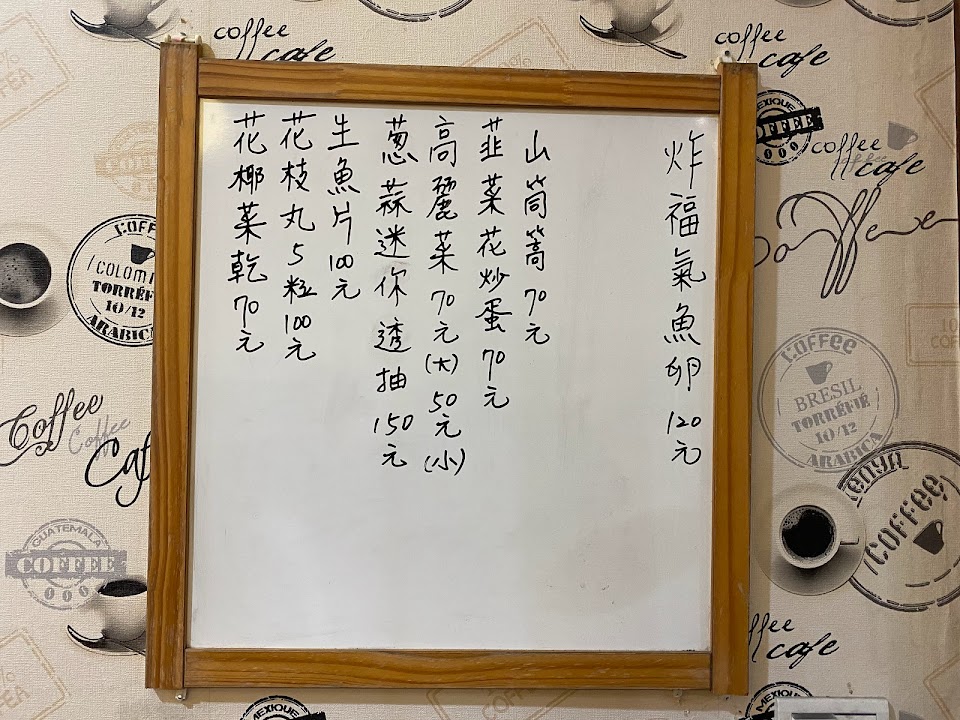 炸福氣魚卵 120元
山筒蒿 70元
韭菜花炒蛋 70元
高麗菜 70元(大) 50元(小)
蔥蒜迷你透抽 150元
生魚片 100元
花枝丸5粒 100元
花椰菜乾 70元
coffee
cafe
coffee
cafe
MEXIQUE
COFFEE
coffee
cafe
COFFEE
COLOMB
TORRÉFIÉ
10/12
ARABICA
Coffee
BRESIL
TORRÉFIÉ
10/12
ARABICA
Coffee
Coffee
Caf
KENYA
Coffee
GUATEMALA
COFFEE
coffee
cafe
MEXIQUE